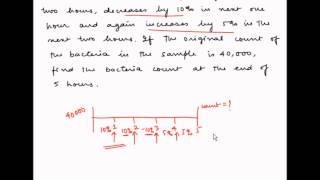 two hours, decreases by 10% in next one
hour and again increases by 5% in the
next two hours. If the original count of
the bacteria in the sample is 40,000,
find the bacteria count at the end of
5 hours.
count = ?
40000
10% 1 10% 2 -10% 3 5% 4 5% 5